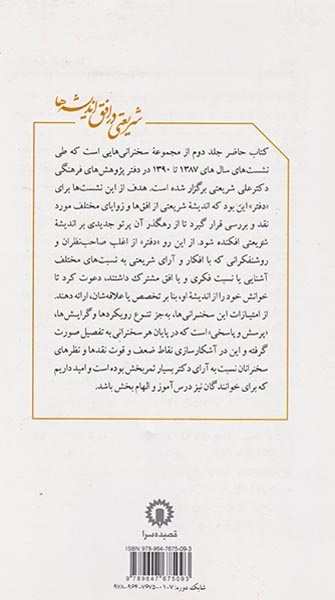 شریعتی در افق اندیشه‌ها
کتاب حاضر جلد دوم از مجموعهٔ سخنرانی‌هایی است که طی
نشست‌های سال های ۱۳۸۷ تا ۱۳۹۰ در دفتر پژوهش‌های فرهنگی
دکتر علی شریعتی برگزار شده است. هدف از این نشست‌ها برای
«دفتر» این بود که اندیشهٔ شریعتی از افق‌ها و زوایای مختلف مورد
نقد و بررسی قرار گیرد تا از رهگذر آن پرتو جدیدی بر اندیشهٔ
شریعتی افکنده شود. از این رو «دفتر» از اغلب صاحب‌نظران و
روشنفکرانی که با افکار و آرای شریعتی به نسبت‌های مختلف
آشنایی یا نسبت فکری و یا افق مشترک داشتند، دعوت کرد تا
خوانش خود را از اندیشهٔ او، بنا بر تخصص یا علاقه‌شان، ارائه دهند.
از امتیازات این سخنرانی‌ها، به‌جز تنوع رویکردها و گرایش‌ها،
«پرسش و پاسخی» است که در پایان هر سخنرانی به تفصیل صورت
گرفته و این در آشکارسازی نقاط ضعف و قوت نقدها و نظرهای
سخنرانان نسبت به آرای دکتر بسیار ثمربخش بوده است و امید داریم
که برای خوانندگان نیز درس آموز و الهام بخش باشد.
قصیده‌سرا
ISBN: 978-964-7675-09-3
9789647675093
شابک دوره: ۷-۰۱-۷۶۷۵-۹۶۴-۹۷۸